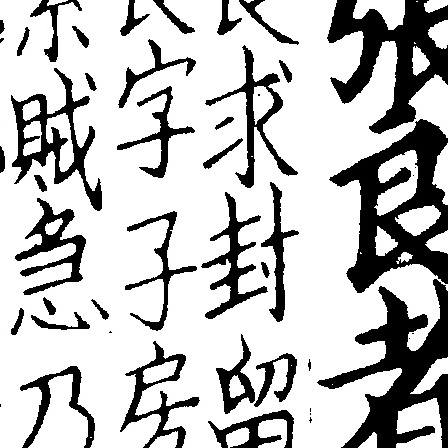 張良者
良求封留
良字子房
索賊急乃